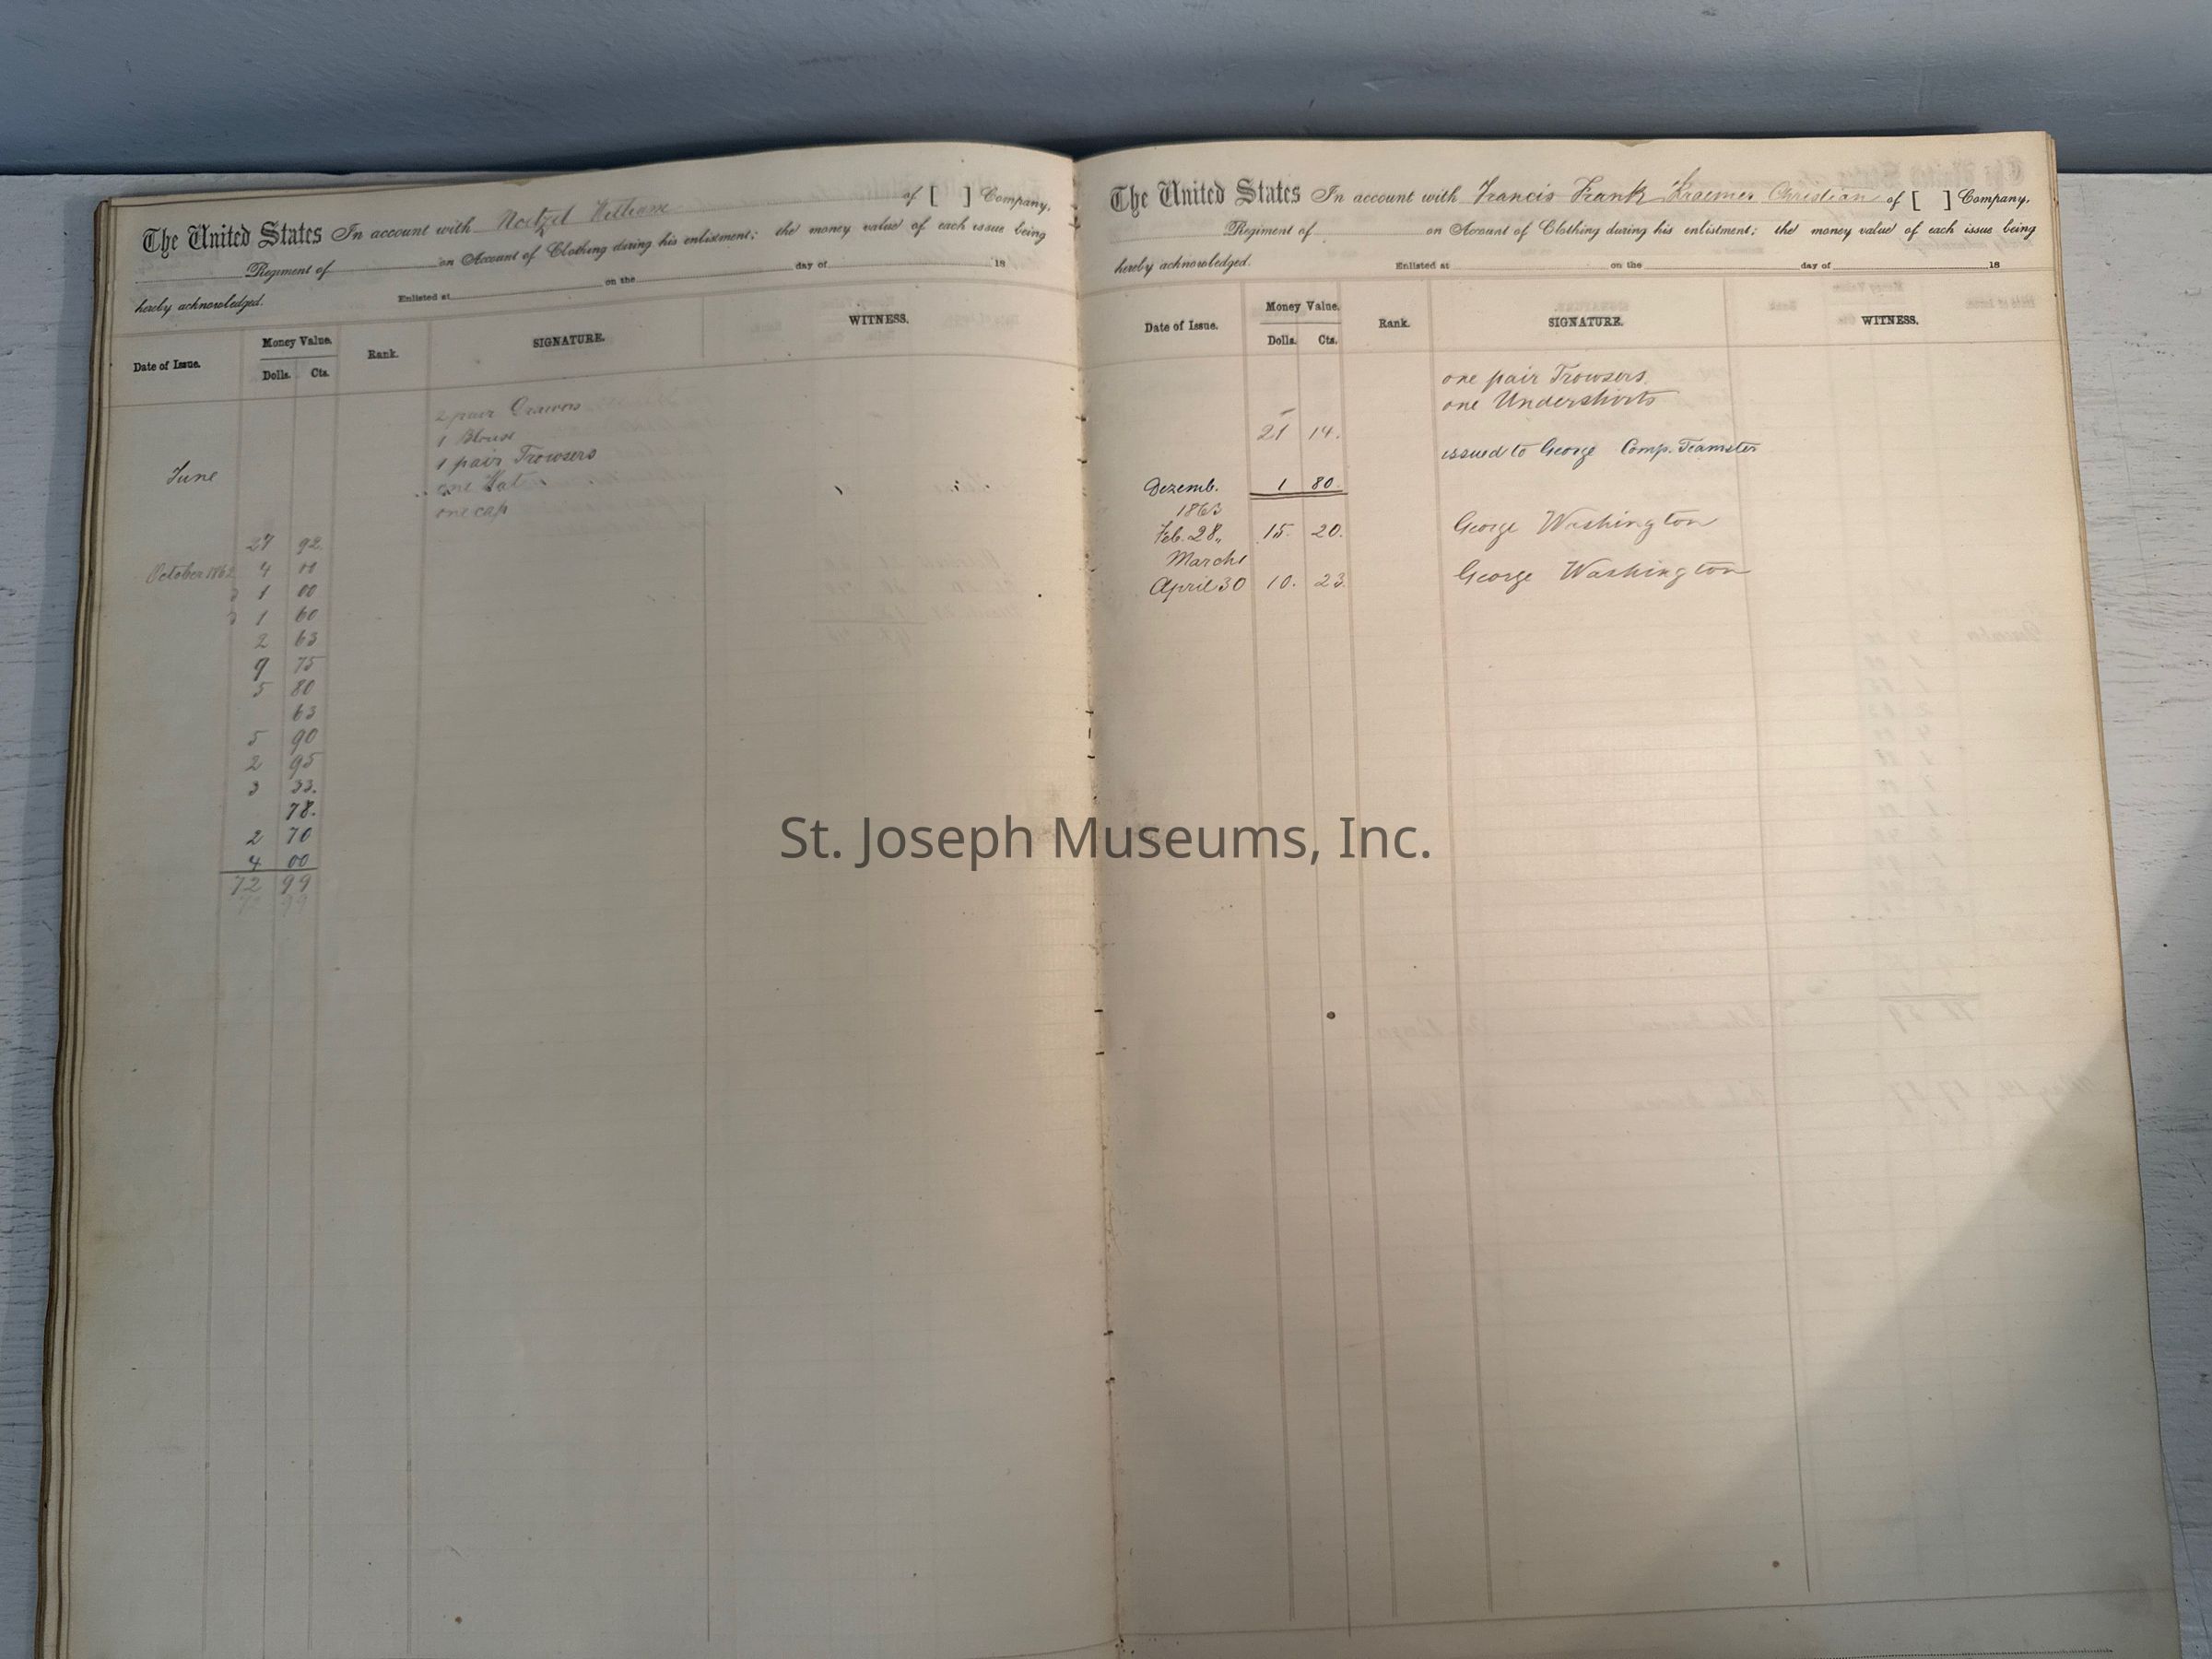 The United States In account with Noetzel William of [ ] Company,
Regiment of on Account of Clothing during his enlistment; the money value of each issue being
hereby acknowledged. Enlisted at on the day of 18
Date of Issue. Money Value. Rank. SIGNATURE. WITNESS.
Dolls. Cts.
2 pair Drawers
1 Blouse
1 pair Trowsers
June one Hat
one cap
27 92
October 1862 4 00
1 00
1 60
2 63
9 75
5 80
63
5 90
2 95
3 33.
78.
2 70
4 00
72 99
72 99
The United States In account with Francis Frank Kraemer Christian of [ ] Company,
Regiment of on Account of Clothing during his enlistment; the money value of each issue being
hereby acknowledged. Enlisted at on the day of 18
Date of Issue. Money Value. Rank. SIGNATURE. WITNESS.
Dolls. Cts.
one pair Trowsers.
one Undershirts
21 14.
issued to George Comp. Teamster
Dezemb. 1 80.
1863
Feb. 28,, 15. 20. George Washington
March
April 30 10. 23. George Washington
St. Joseph Museums, Inc.